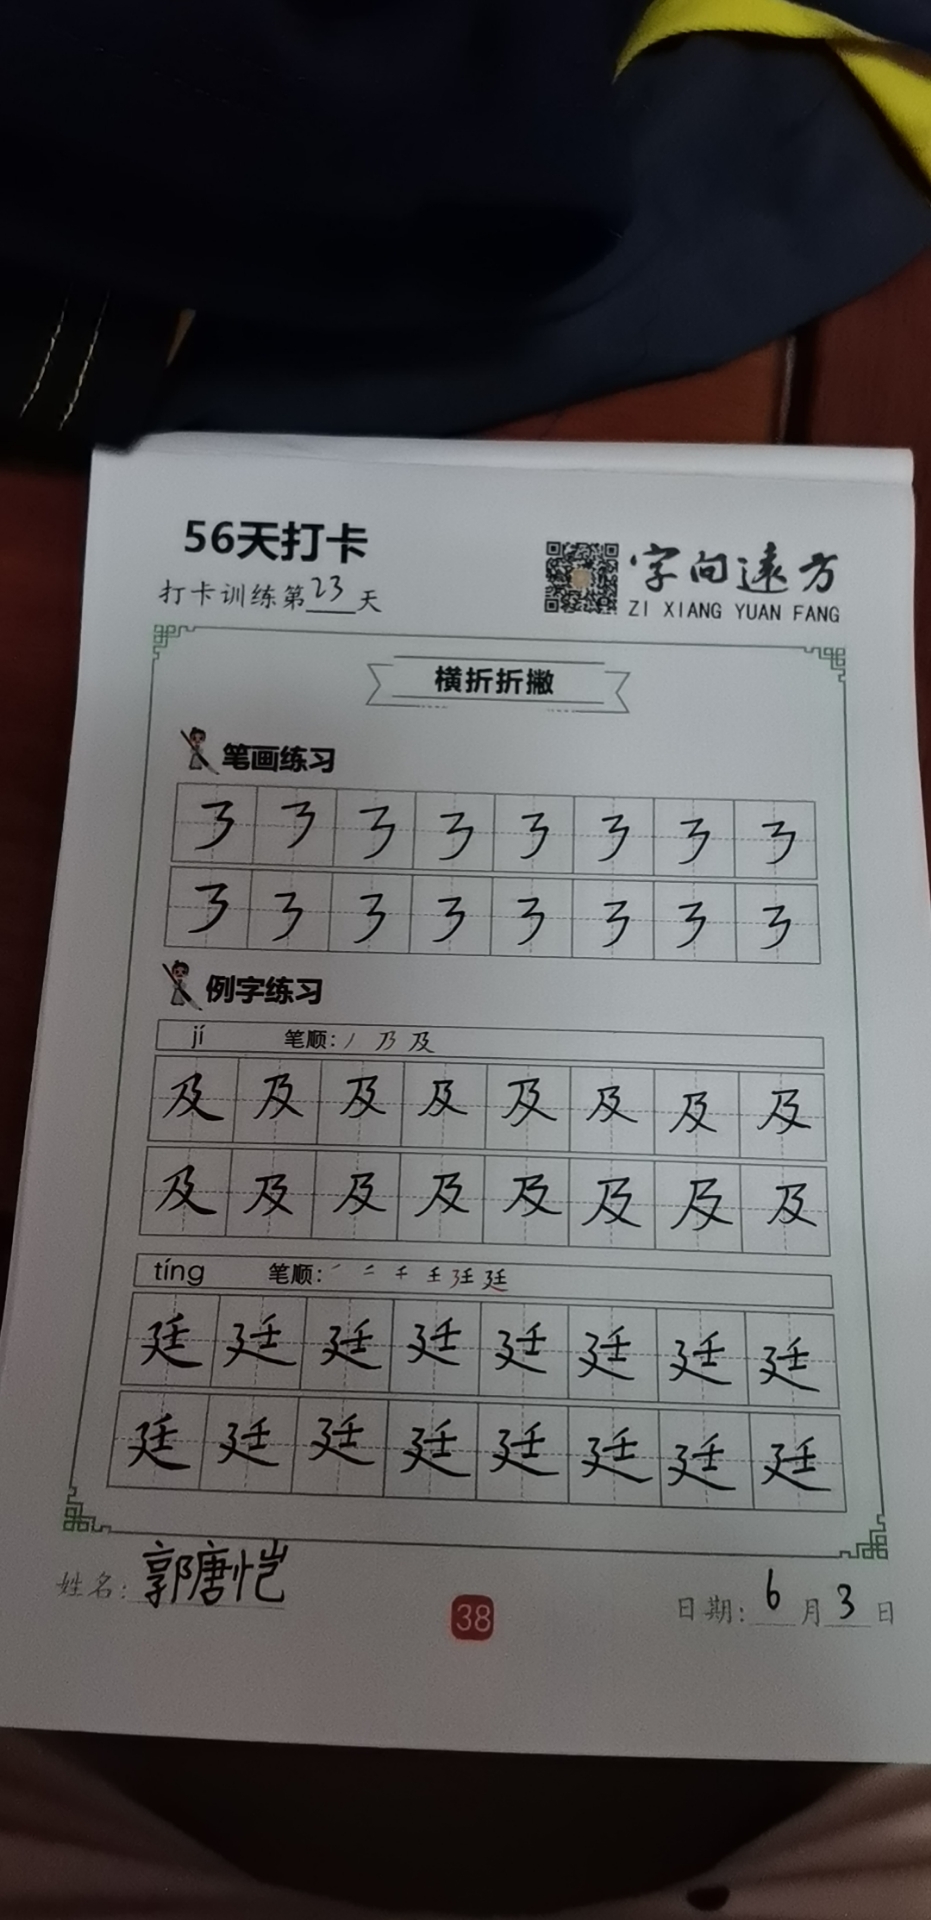 56天打卡
打卡训练第23天
字向远方
ZI XIANG YUAN FANG
横折折撇
笔画练习
㇋㇋㇋㇋㇋㇋㇋㇋
㇋㇋㇋㇋㇋㇋㇋㇋
例字练习
jí 笔顺:丿乃及
及及及及及及及及
及及及及及及及及
tíng 笔顺:㇒二千壬廷廷
廷廷廷廷廷廷廷廷
廷廷廷廷廷廷廷廷
姓名:郭唐恺
38
日期:6月3日